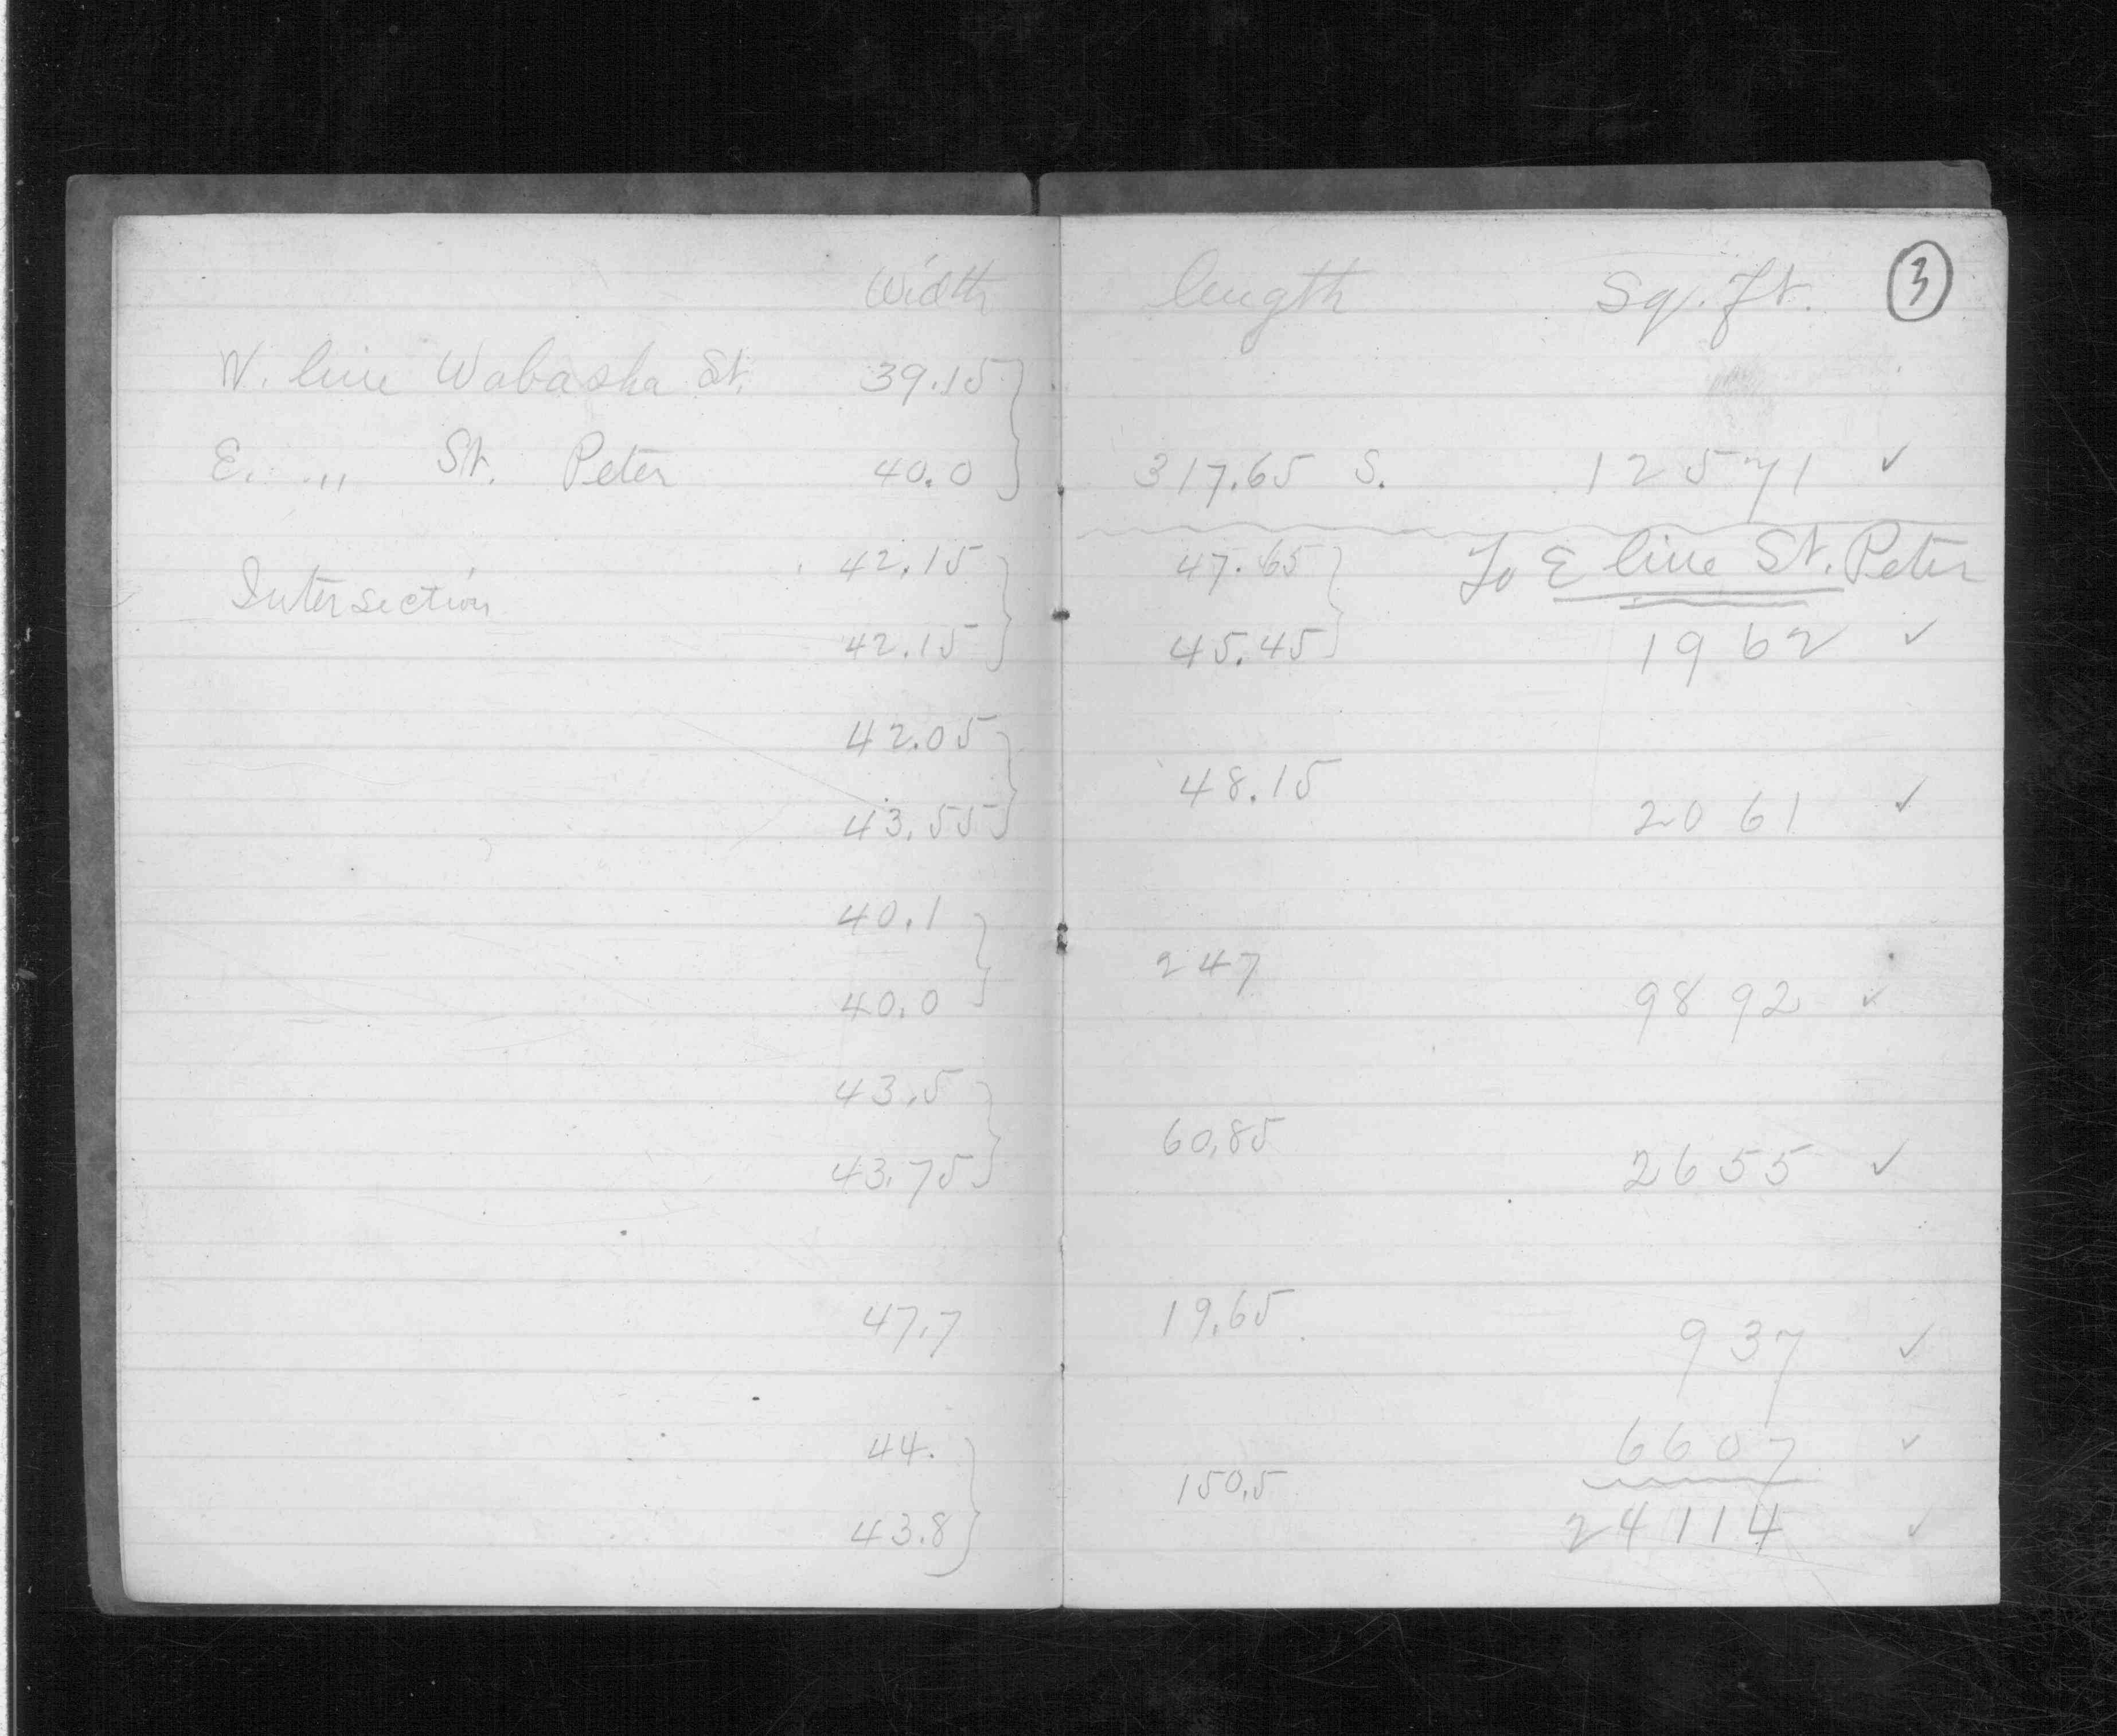 Width length Sq. Ft. 3
W. line Wabasha St. 39.15
E. " St. Peter 40.0 317.65 S. 12571 ✓
42.15 47.65 To E line St. Peter
Intersection
42.15 45.45 1962 ✓
42.05
48.15
43.55 2061 ✓
40.1
247
40.0 9892 ✓
43.5
60.85
43.75 2655 ✓
47.7 19.65 937 ✓
44. 6607 ✓
150.5
43.8 24114 ✓